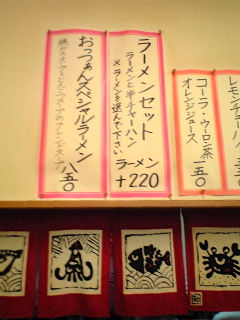 レモンチュー
コーラ・ウーロン茶
オレンジジュース
一五〇
ラーメンセット
ラーメンと半チャーハン
※ラーメンを選んで下さい
ラーメン
+220
おっつぁんスペシャルラーメン
八五〇